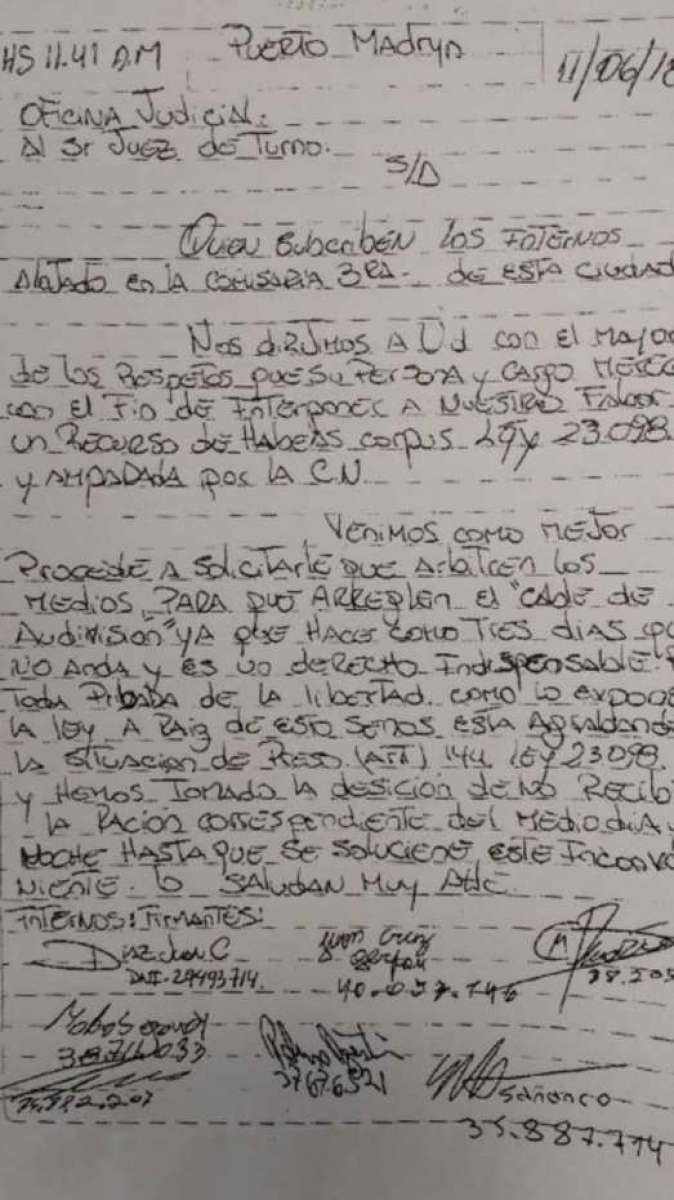 HS 11.41 A.M Puerto Madryn 11/06/18
Oficina Judicial:
Al Sr Juez de Turno.
S/D
Quien subscriben los internos
Alojado en la comisaria 3ra. de esta ciudad
Nos dirijimos a Ud con el mayor
de los respetos que su persona y cargo merec
con el fin de interponer a nuestro favor
un recurso de Habeas corpus Ley 23.098
y amparada por la C.N.
Venimos como mejor
procede a solicitarle que arbitren los
medios para que arreglen el "cable de
ya que hace como tres dias
no anda y es un derecho indispensable
toda pribada de la libertad. como lo expone
la ley a raiz de esto se nos esta
la situacion de preso. ley 23.098.
y hemos tomado la desición de no recib
la racion correspondiente del mediodia y
noche hasta que se solucione este inconve
niente. lo saludan muy atte.
Internos: Firmantes:
Diaz C
DNI-29493714.
40.
38.
37676521
35.887.774